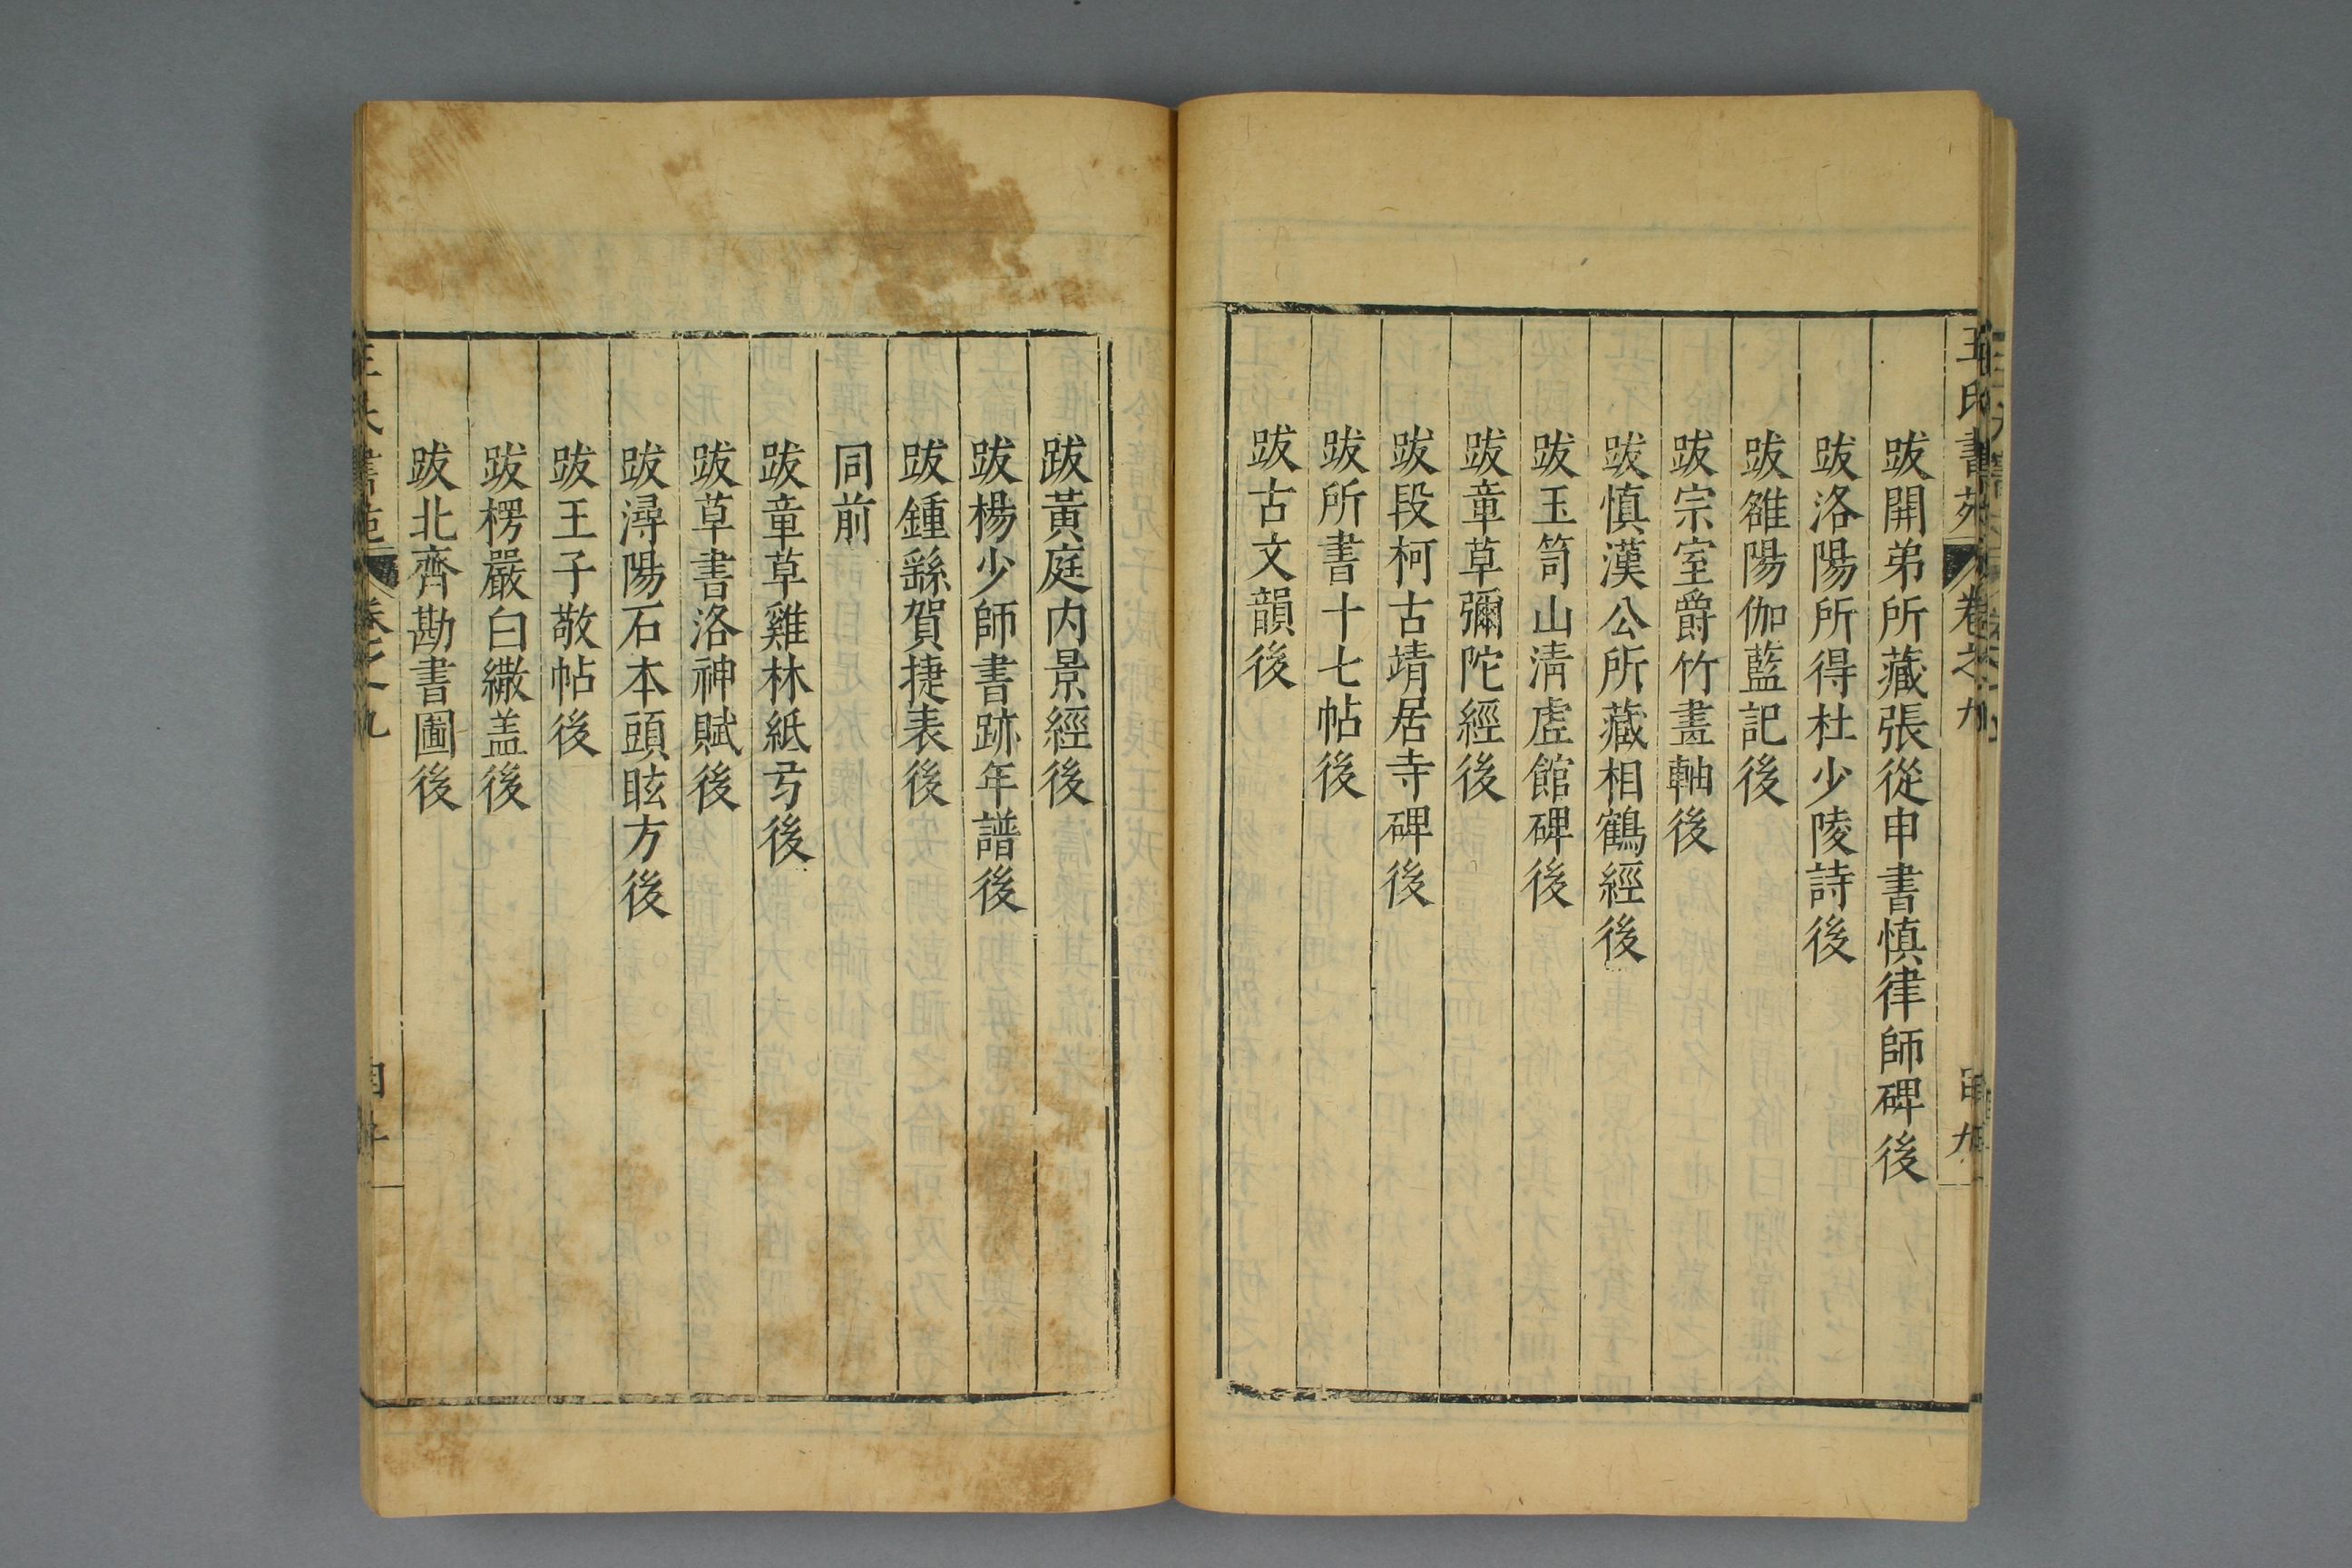 書苑
卷之九
跋開弟所藏張從申書慎律師碑後
跋洛陽所得杜少陵詩後
跋雒陽伽藍記後
跋宗室爵竹畫軸後
跋慎漢公所藏相鶴經後
跋玉笥山清虛館碑後
跋章草彌陀經後
跋段柯古靖居寺碑後
跋所書十七帖後
跋古文韻後
跋黃庭內景經後
跋楊少師書跡年譜後
跋鍾繇賀捷表後
同前
跋章草雞林紙弓後
跋草書洛神賦後
跋潯陽石本頭眩方後
跋王子敬帖後
跋楞嚴白繖盖後
跋北齊勘書圖後